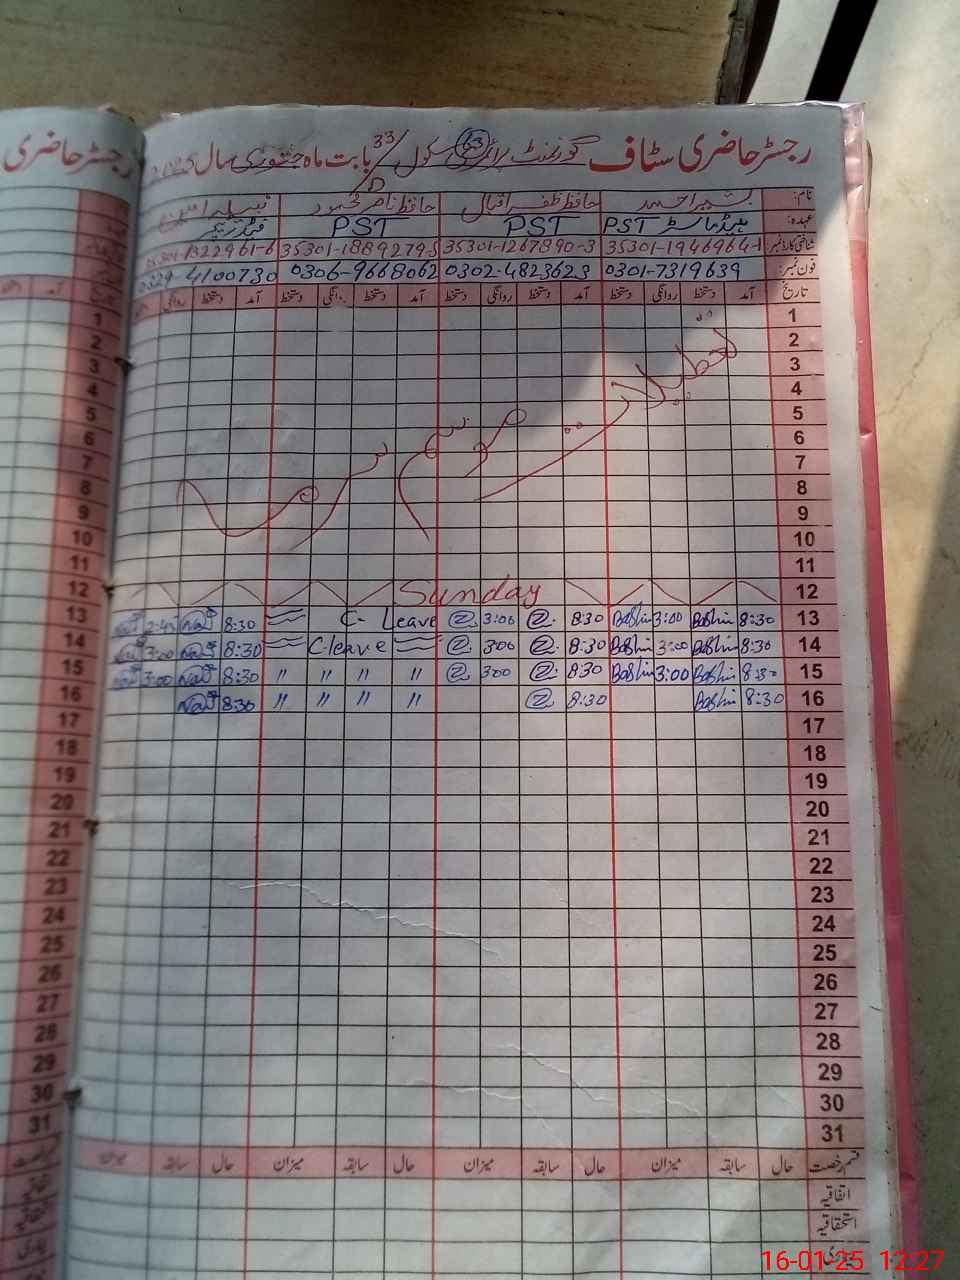 رجسٹر حاضری
رجسٹر حاضری سٹاف گورنمنٹ سکول 33/ بابت ماہ جنوری سال 2025
نام: بشیر احمد حافظ ظفر اقبال حافظ ناصر محمود
عہدہ: ہیڈ ماسٹر PST PST PST
شناختی کارڈ نمبر: 35301-1946964-1 35301-1267890-3 35301-1889279-5 35301-1322961-6
فون نمبر: 0301-7319639 0302-4823623 0306-9668062 0329-4100730
تاریخ آمد دستخط روانگی دستخط آمد دستخط روانگی دستخط آمد دستخط روانگی دستخط آمد دستخط روانگی
1
2
3
4
5
6
7
8
9
10
11
تعطیلات موسم سرما
12 Sunday
13 8:30 Bashir 3:00 Bashir 8:30 3:00 C- Leave 8:30 2:45
14 8:30 Bashir 3:00 Bashir 8:30 3:00 C leave 8:30 3:00
15 8:30 Bashir 3:00 Bashir 8:30 3:00 " " " " 8:30 3:00
16 8:30 Bashir 8:30 " " " " 8:30
17
18
19
20
21
22
23
24
25
26
27
28
29
30
31
قسم رخصت حال سابقہ میزان حال سابقہ میزان حال سابقہ میزان حال سابقہ میزان
اتفاقیہ
استحقاقیہ
بیماری
16-01-25 12:27